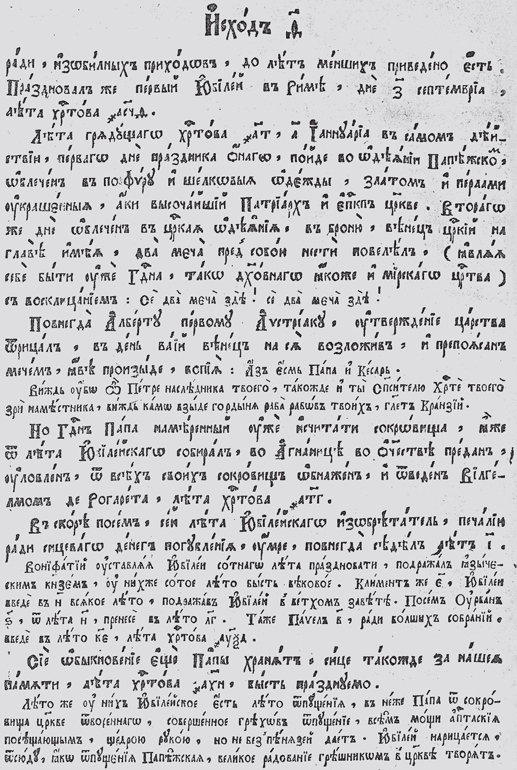 И҆схо́дъ а҃
ра́ди, и҆зѡби́лныхъ прихо́дѡвъ, до лѣ́тъ ме́ншихъ приведено̀ є҆́сть.
Пра́здновалъ же пе́рвый Ю҆біле́й въ Ри́мѣ, днѐ з҃ септе́мвріа,
лѣ́та хрⷭ҇това
Лѣ́та грѧдꙋ́щагѡ хрⷭ҇това ҂ат҃, а҃ І҆аннꙋа́ріа въ са́момъ дѣ́й-
ствіи, пе́рвагѡ днѐ пра́здника ѻ҆́нагѡ, по́йде во ѡ҆дѣѧ́ніи Папе́жскомъ,
ѡ҆блече́нъ въ порфѵ́рꙋ и҆ ше́лкѡвыѧ ѻ҆де́жды, зла́томъ и҆ пе́рлами
ᲂу҆кра́шєныѧ, а҆́ки высоча́йшій Патрїа́рхъ и҆ є҆пⷭ҇кпъ цр҃кве. Втора́гѡ
же днѐ ѡ҆блече́нъ въ цр҃каѧ ѡ҆дѣѧ̑нїѧ, въ броню̀, вѣне́цъ цр҃кїй на
главѣ̀ и҆мѣ́ѧ, два̀ меча̀ пред̾ собо́ю нестѝ повелѣ́лъ, (ꙗ҆влѧ́ѧ
себѐ бы́ти ᲂу҆жѐ гдⷭ҇на, та́кѡ дх҃о́внагѡ ꙗ҆́коже и҆ мїрска́гѡ црⷭ҇тва)
съ восклица́нїемъ: Сѐ два̀ меча̀ здѣ̀! сѐ два̀ меча̀ здѣ̀!
Повнегда̀ А҆лбе́ртꙋ пе́рвомꙋ А҆ѵстрі́акꙋ, ᲂу҆твержде́нїе ца́рства
ѿрица́лъ, въ де́нь ва́їй вѣне́цъ на сѧ̀ возложи́въ, и҆ препоѧ́санъ
мече́мъ, ꙗ҆́вѣ произы́де, вопїѧ̀: А҆́зъ є҆́смь Па́па и҆ Ке́сарь.
Ви́ждь ᲂу҆́бѡ ѽ Пе́тре наслѣ́дника твоего̀, та́кожде и҆ ты̀ Сп҃си́телю Хрⷭ҇тѐ твоего̀
зрѝ намѣ́стника, ви́ждь ка́мѡ взы́де горды́нѧ раба̀ рабѡ́въ твои́хъ, гл҃етъ Кра́нзїй.
Но Гдⷭ҇нъ Па́па намѣ́ренный ᲂу҆жѐ и҆счита́ти сокрѡ́вища, ꙗ҆̀же
ѿ лѣ́та Ю҆біле́йскагѡ собира́лъ, во А҆гнани́цѣ во ѻ҆те́чествѣ пре́данъ,
ᲂу҆ло́вленъ, ѿ всѣ́хъ свои́хъ сокро́вищъ ѡ҆бнаже́нъ, и҆ ѿведе́нъ Вілге́-
лмомъ де Рогаре́та, лѣ́та хрⷭ҇това ҂атг҃.
Въ ско́рѣ посе́мъ, се́й лѣ́та Ю҆біле́йскагѡ и҆зѡбрѣта́тель, печа́лїю
ра́ди сицева́гѡ де́негъ погꙋбле́нїѧ, ᲂу҆́мре, повнегда̀ сѣдѣ́лъ лѣ́тъ
Воніфа́тїй ᲂу҆ставлѧ́ѧ Ю҆біле́и со́тнагѡ лѣ́та пра́здновати, подража́лъ ꙗ҆зы́че-
скимъ кнѧзє́мъ, ᲂу҆ ни́хже со́тое лѣ́то бы́сть вѣ́ковое. Климе́нтъ же є҃, Ю҆біле́и
введѐ въ н҃ всѧ́кое лѣ́то, подража́въ Ю҆біле́й въ ве́тхомъ завѣ́тѣ. Посе́мъ Оу҆рба́нъ
ѕ҃, ѿ лѣ́та н҃, пренесѐ въ лѣ́то лг҃. Та́же Па́велъ в҃, ра́ди бо́лшихъ собра́нїй,
введѐ въ лѣ́то ке҃, лѣ́та хрⷭ҇това
Сїѐ ѡ҆быкнове́нїе є҆щѐ Па́пы хранѧ́тъ, си́це та́кожде за на́шеѧ
па́мѧти, лѣ́та хрⷭ҇това бы́сть пра́зднꙋемо.
Лѣ́то же ᲂу҆ ни́хъ Ю҆біле́йское є҆́сть лѣ́то ѿпꙋще́нїѧ, въ не́же Па́па ѿ сокро́-
вища цр҃кве ѿворе́ннагѡ, соверше́нное грѣхѡ́въ ѿпꙋще́нїе, всѣ̑мъ мо́щи а҆пⷭ҇тлскїѧ
посѣща́ющымъ, ще́дрою рꙋко́ю, но не без̾ пѣ́нѧзей дае́тъ. Ю҆біле́й нарица́етсѧ,
ѿсю́дꙋ, ꙗ҆́кѡ ѿпꙋще́нїѧ Папе́жскаѧ, вели́кое ра́дованїе грѣ́шникѡмъ въ цр҃квѣ творѧ́тъ.